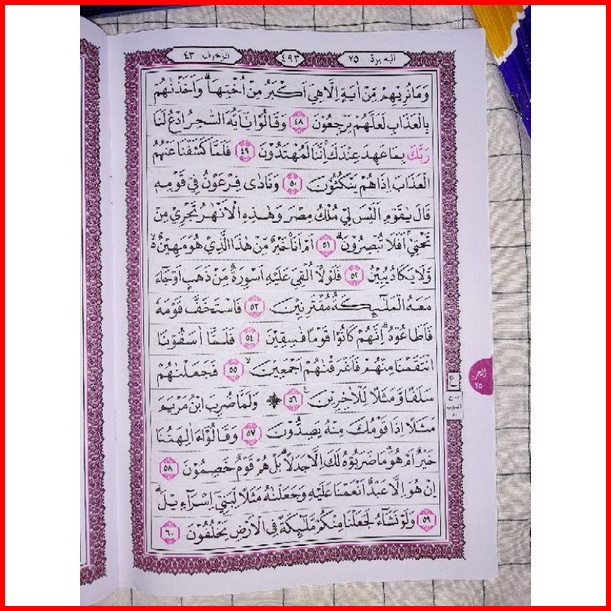 الزخرف ٤٣ ٤٩٣ اليه يرد ٢٥
وَمَا نُرِيْهِمْ مِّنْ اٰيَةٍ اِلَّا هِيَ اَكْبَرُ مِنْ اُخْتِهَاۗ وَاَخَذْنٰهُمْ
بِالْعَذَابِ لَعَلَّهُمْ يَرْجِعُوْنَ ٤٨ وَقَالُوْا يٰٓاَيُّهَ السّٰحِرُ ادْعُ لَنَا
رَبَّكَ بِمَا عَهِدَ عِنْدَكَۚ اِنَّنَا لَمُهْتَدُوْنَ ٤٩ فَلَمَّا كَشَفْنَا عَنْهُمُ
الْعَذَابَ اِذَا هُمْ يَنْكُثُوْنَ ٥٠ وَنَادٰى فِرْعَوْنُ فِيْ قَوْمِهٖ
قَالَ يٰقَوْمِ اَلَيْسَ لِيْ مُلْكُ مِصْرَ وَهٰذِهِ الْاَنْهٰرُ تَجْرِيْ مِنْ
تَحْتِيْۚ اَفَلَا تُبْصِرُوْنَۗ ٥١ اَمْ اَنَا۠ خَيْرٌ مِّنْ هٰذَا الَّذِيْ هُوَ مَهِيْنٌ ەۙ
وَّلَا يَكَادُ يُبِيْنُ ٥٢ فَلَوْلَآ اُلْقِيَ عَلَيْهِ اَسْوِرَةٌ مِّنْ ذَهَبٍ اَوْ جَاۤءَ
مَعَهُ الْمَلٰۤىِٕكَةُ مُقْتَرِنِيْنَ ٥٣ فَاسْتَخَفَّ قَوْمَهٗ
فَاَطَاعُوْهُۗ اِنَّهُمْ كَانُوْا قَوْمًا فٰسِقِيْنَ ٥٤ فَلَمَّآ اٰسَفُوْنَا
انْتَقَمْنَا مِنْهُمْ فَاَغْرَقْنٰهُمْ اَجْمَعِيْنَۙ ٥٥ فَجَعَلْنٰهُمْ
سَلَفًا وَّمَثَلًا لِّلْاٰخِرِيْنَ ٥٦ ۞ وَلَمَّا ضُرِبَ ابْنُ مَرْيَمَ
مَثَلًا اِذَا قَوْمُكَ مِنْهُ يَصِدُّوْنَ ٥٧ وَقَالُوْٓا ءَاٰلِهَتُنَا
خَيْرٌ اَمْ هُوَۗ مَا ضَرَبُوْهُ لَكَ اِلَّا جَدَلًاۗ بَلْ هُمْ قَوْمٌ خَصِمُوْنَ ٥٨
اِنْ هُوَ اِلَّا عَبْدٌ اَنْعَمْنَا عَلَيْهِ وَجَعَلْنٰهُ مَثَلًا لِّبَنِيْٓ اِسْرَاۤءِيْلَۗ
٥٩ وَلَوْ نَشَاۤءُ لَجَعَلْنَا مِنْكُمْ مَّلٰۤىِٕكَةً فِى الْاَرْضِ يَخْلُفُوْنَ ٦٠
٢٥